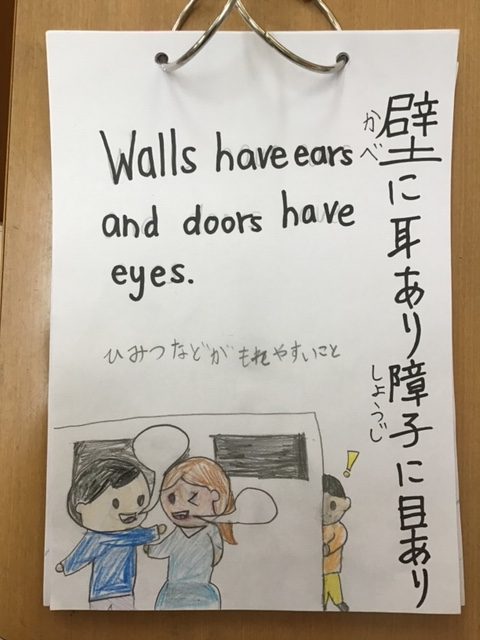 壁に耳あり障子に目あり
かべ
しょうじ
Walls have ears
and doors have
eyes.
ひみつなどがもれやすいこと
!